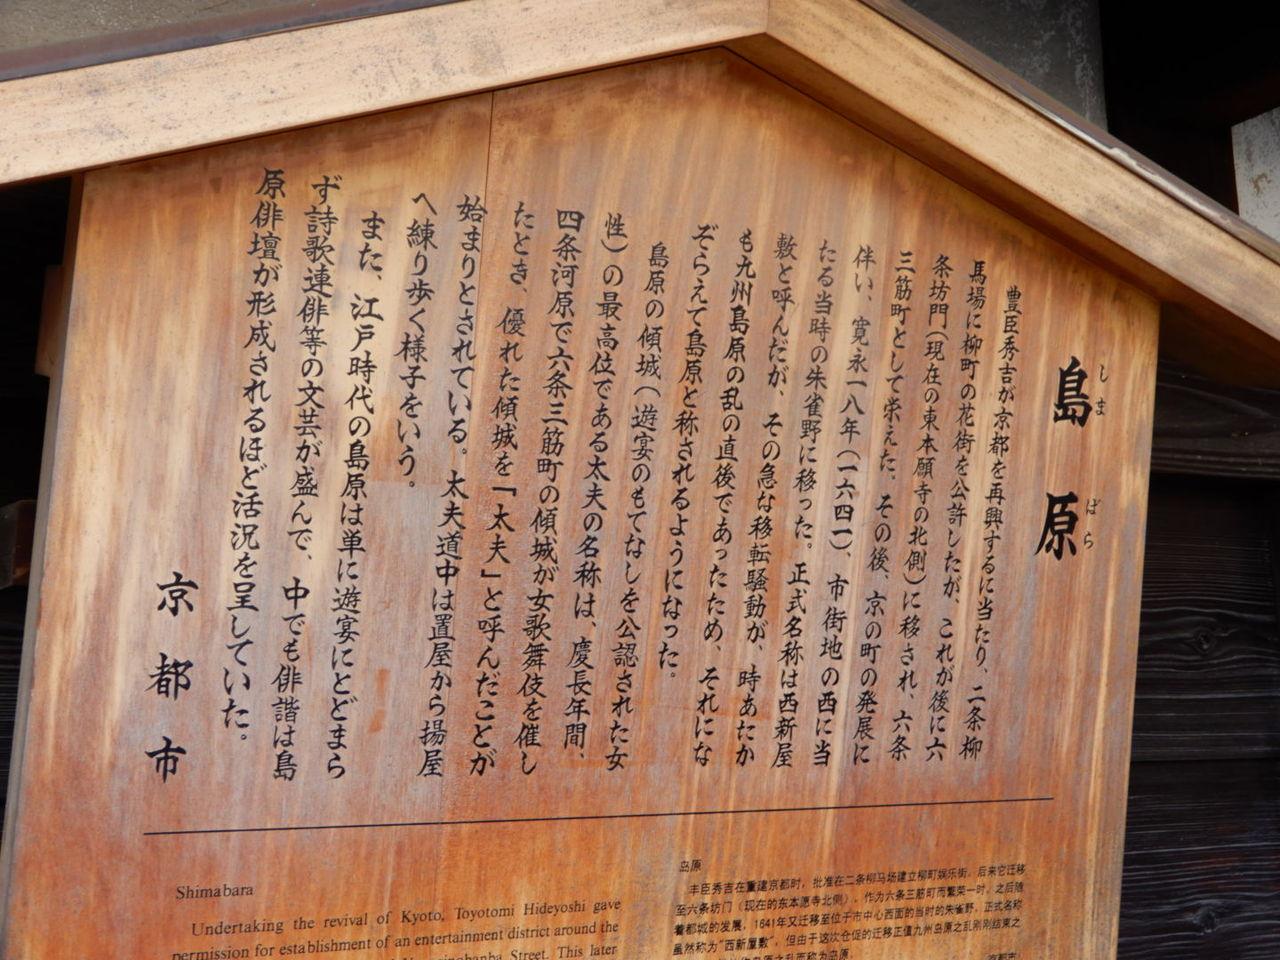 島原
しまばら
豊臣秀吉が京都を再興するに当たり、二条柳
馬場に柳町の花街を公許したが、これが後に六
条坊門(現在の東本願寺の北側)に移され、六条
三筋町として栄えた。その後、京の町の発展に
伴い、寛永一八年(一六四一)、市街地の西に当
たる当時の朱雀野に移った。正式名称は西新屋
敷と呼んだが、その急な移転騒動が、時あたか
も九州島原の乱の直後であったため、それにな
ぞらえて島原と称されるようになった。
島原の傾城(遊宴のもてなしを公認された女
性)の最高位である太夫の名称は、慶長年間、
四条河原で六条三筋町の傾城が女歌舞伎を催し
たとき、優れた傾城を「太夫」と呼んだことが
始まりとされている。太夫道中は置屋から揚屋
へ練り歩く様子をいう。
また、江戸時代の島原は単に遊宴にとどまら
ず詩歌連俳等の文芸が盛んで、中でも俳諧は島
原俳壇が形成されるほど活況を呈していた。
京都市
Shimabara
Undertaking the revival of Kyoto, Toyotomi Hideyoshi gave
permission for establishment of an entertainment district around the
Street. This later
岛原
丰臣秀吉在重建京都时，批准在二条柳马场建立柳町娱乐街，后来它迁移
至六条坊门（现在的东本愿寺北侧），作为六条三筋町而繁荣一时。之后随
着都城的发展，1641年又迁移至位于市中心西面的当时的朱雀野，正式名称
虽然称为"西新屋敷"，但由于这次仓促的迁移正值九州岛原之乱刚刚结束之
岛原之乱而称为岛原。